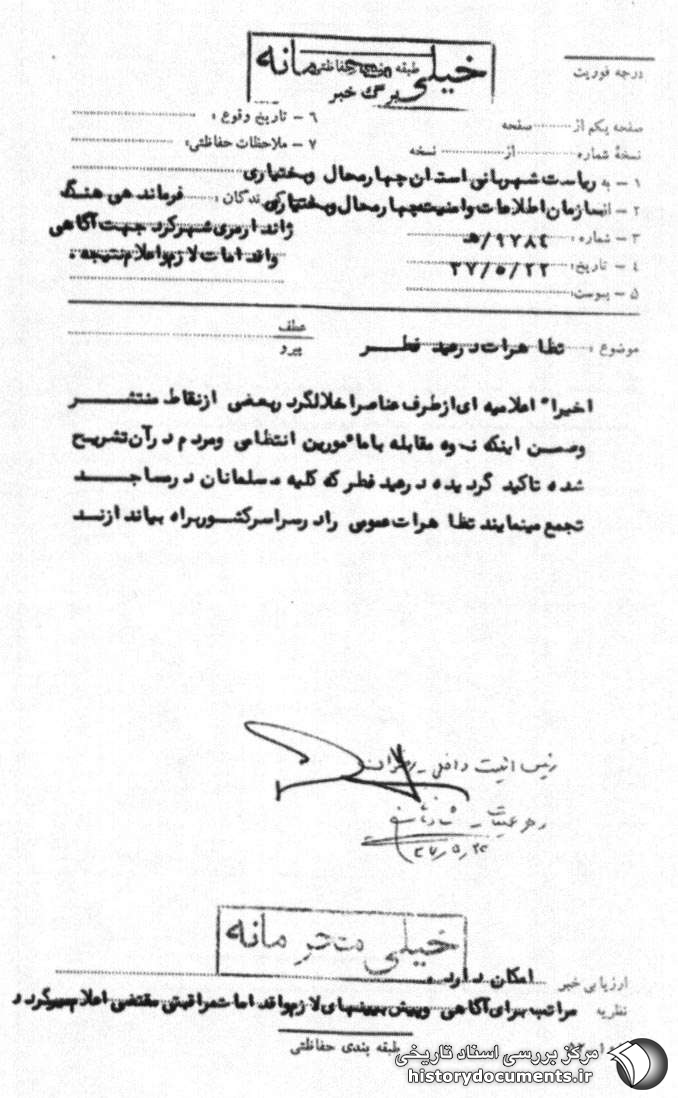 خیلی محرمانه
طبقه بندی حفاظتی
برگ خبر
درجه فوریت
صفحه یکم از صفحه
نسخهٔ شماره از نسخه
۱ - به ریاست شهربانی استان چهارمحال وبختیاری
۲ - از سازمان اطلاعات وامنیت چهارمحال وبختیاری
۳ - شماره: ۹۷۸۴/هـ
۴ - تاریخ: ۳۷/۵/۲۲
۵ - پیوست:
۶ - تاریخ وقوع:
۷ - ملاحظات حفاظتی:
گیرندگان: فرماندهی هنگ
ژاندارمری شهرکرد جهت آگاهی
واقدامات لازم واعلام نتیجه.
عطف
پیرو
موضوع: تظاهرات در عید فطر
اخیرا" اعلامیه ای از طرف عناصر اخلالگر در بعضی از نقاط منتشر
وضمن اینکه نحوه مقابله با مامورین انتظامی ومردم در آن تشریح
شده تاکید گردیده در عید فطر که کلیه مسلمانان در مساجد
تجمع مینمایند تظاهرات عمومی را در سراسر کشور براه بیاندازند
رئیس امنیت داخلی
خیلی محرمانه
ارزیابی خبر امکان دارد.
نظریه مراتب برای آگاهی وپیش بینیهای لازم واقدامات مراقبتی مقتضی اعلام میگردد
طبقه بندی حفاظتی
مرکز بررسی اسناد تاریخی
historydocuments.ir